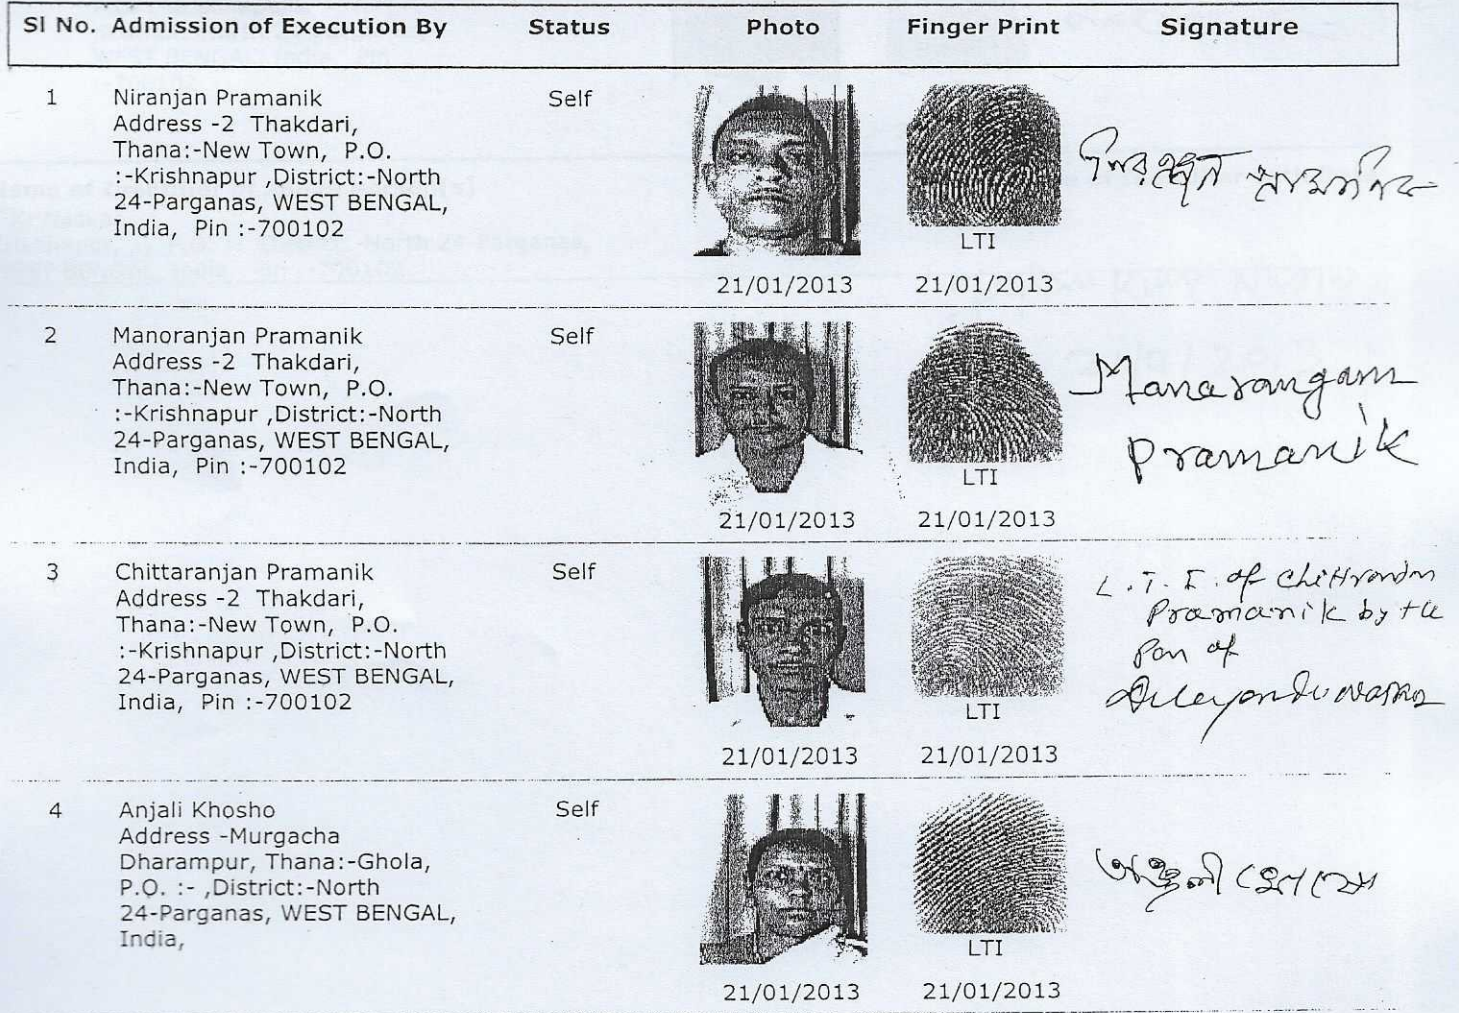 Sl No. Admission of Execution By Status Photo Finger Print Signature
1 Niranjan Pramanik Self
Address -2 Thakdari,
Thana:-New Town, P.O.
:-Krishnapur ,District:-North
24-Parganas, WEST BENGAL,
India, Pin :-700102
LTI
21/01/2013 21/01/2013
নিরঞ্জন প্রামানিক
2 Manoranjan Pramanik Self
Address -2 Thakdari,
Thana:-New Town, P.O.
:-Krishnapur ,District:-North
24-Parganas, WEST BENGAL,
India, Pin :-700102
LTI
21/01/2013 21/01/2013
Manarangam
Pramanik
3 Chittaranjan Pramanik Self
Address -2 Thakdari,
Thana:-New Town, P.O.
:-Krishnapur ,District:-North
24-Parganas, WEST BENGAL,
India, Pin :-700102
LTI
21/01/2013 21/01/2013
L.T.I. of
Pramanik by the
Pen of
4 Anjali Khosho Self
Address -Murgacha
Dharampur, Thana:-Ghola,
P.O. :- ,District:-North
24-Parganas, WEST BENGAL,
India,
LTI
21/01/2013 21/01/2013
অঞ্জলী